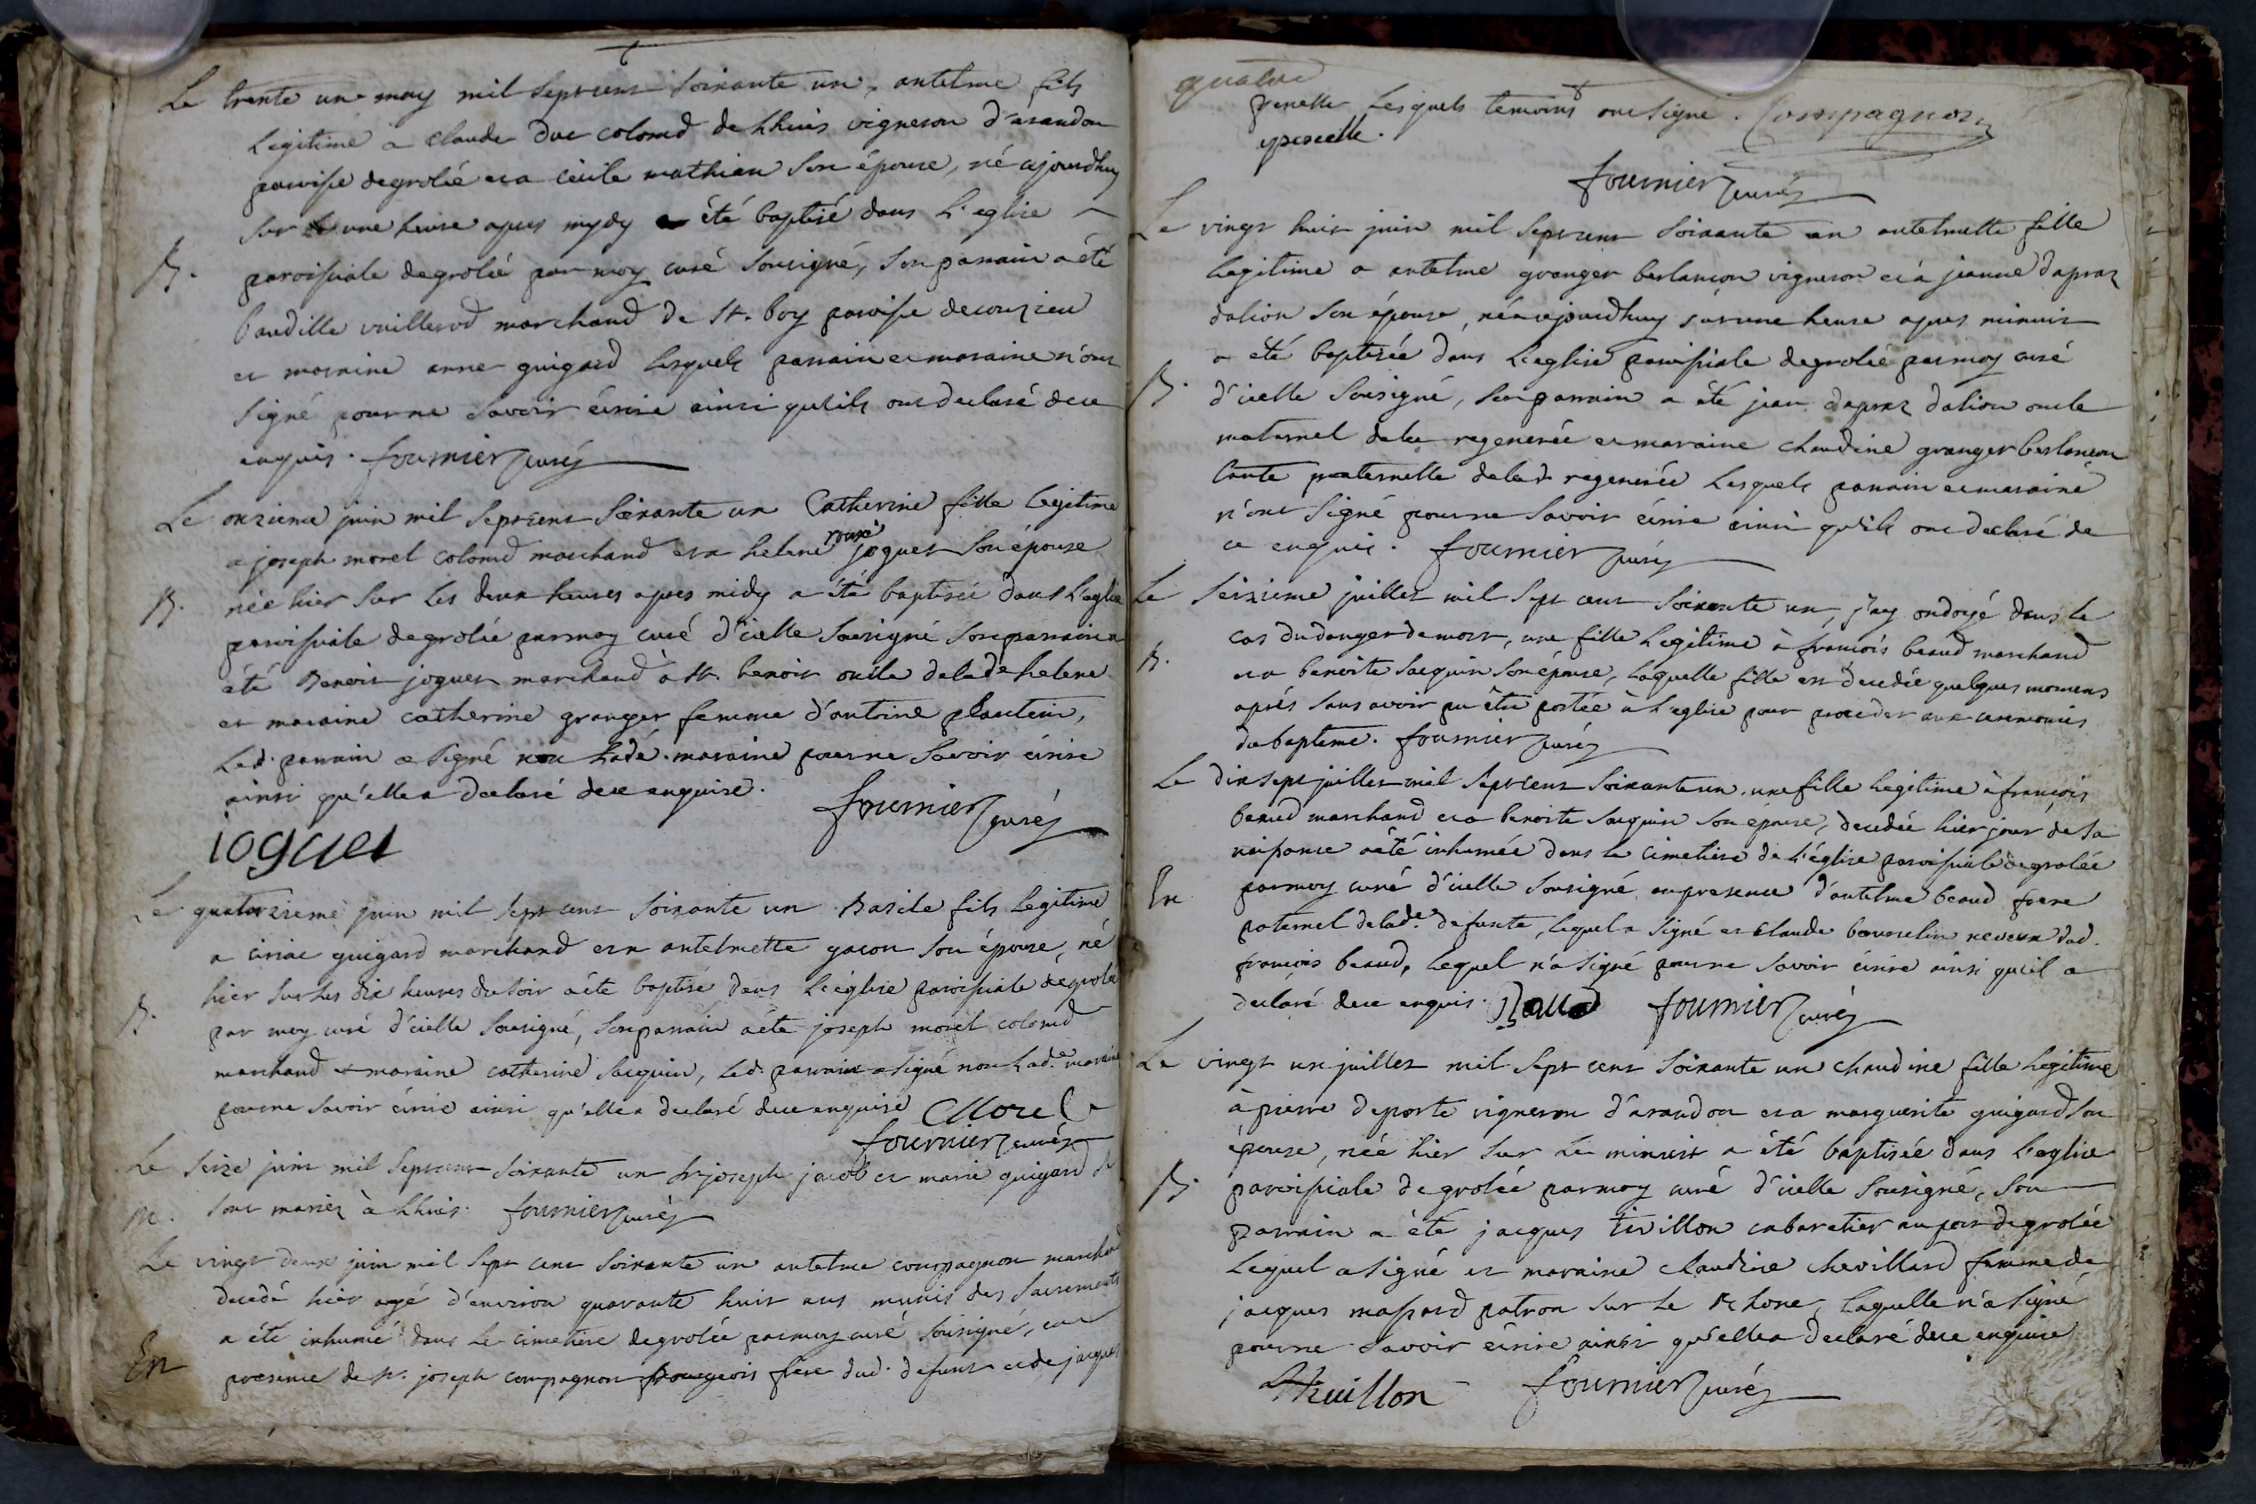 Le trente un may mil sept cent soixante un, antelme fils
legitime a claude duc colomd de Lhuis vigneron d'arandon
paroisse de grolée et a cecile mathieu son épouse, né ajourdhuy
sur une heure apres mydy a été baptisé dans l'eglise
B. paroissiale de grolée par moy curé sousigné, son parrain a été
baudille vuillerod marchand de St. boy paroisse de conzieu
et maraine anne guigard lesquels parrain et maraine n'ont
signé pour ne savoir écrire ainsi qu'ils ont declaré de ce
enquis. fournier curé
Le onzieme juin mil sept cent soixante un Catherine fille legitime
roux
a joseph morel colomd marchand et a helene joguet son épouse
B. née hier sur les deux heures apres midy a été baptisée dans l'eglise
paroissiale de grolée par moy curé d'icelle sousigné son parrain a
été Benoit joguet marchand à St. benoit oncle de lade helene
et maraine catherine granger femme d'antoine plantin,
led. parrain a signé non lade. maraine pour ne savoir écrire
ainsi qu'elle a declaré de ce enquise. fournier curé
ioguet
Le quatorzieme juin mil sept cent soixante un Basile fils legitime
a ciriac guigard marchand et a antelmette gacon son épouse, né
hier sur les dix heures du soir a été baptisé dans l'église paroissiale de grolée
B. par moy curé d'icelle sousigné, son parrain a été joseph morel colomd
marchand et maraine catherine sacquin, led. parrain a signé non lade. maraine
pour ne savoir écrire ainsi qu'elle a declaré de ce enquise Morel
fournier curé
Le seize juin mil sept cent soixante un Sr joseph jacob et marie guigard se
M. sont mariez à Lhuis. fournier curé
Le vingt deux juin mil sept cent soixante un antelme compagnon marchand
decedé hier agé d'environ quarante huit ans munis des sacrements
a été inhumé dans le cimetiere de grolée par moy curé sousigné, en
En presence de Sr. joseph compagnon bourgeois frere dud. defunt et de jacques
quatre
lesquels temoins ont signé. Compagnon
fournier curé
Le vingt huit juin mil sept cent soixante un antelmette fille
legitime a antelme granger berlancon vigneron et a jeanne dapraz
dalion son épouse, née ajourdhuy sur une heure apres minuit
a été baptisée dans l'eglise paroissiale de grolée par moy curé
B. d'icelle sousigné, son parrain a été jean dapraz dalion oncle
maternel de la regenerée et maraine claudine granger berlancon
tante paternelle de lad. regenerée lesquels parrain et maraine
n'ont signé pour ne savoir écrire ainsi qu'ils ont declaré de
ce enquis. fournier curé
Le seizieme juillet mil sept cent soixante un, j'ay ondoyé dans le
cas du danger de mort, une fille legitime à françois beaud marchand
B. et a benoite sacquin son épouse, laquelle fille est decedée quelques momens
aprés sans avoir pu être portée à l'eglise pour proceder aux ceremonies
du bapteme. fournier curé
Le dix sept juillet mil sept cent soixante un, une fille legitime à françois
beaud marchand et a benoite sacquin son épouse, decedée hier jour de sa
naissance a été inhumée dans le cimetiere de l'église paroissiale de grolée
En par moy curé d'icelle sousigné en presence d'antelme beaud frere
paternel de lade. defunte, lequel a signé et claude bourselin neveux dud.
françois beaud, lequel n'a signé pour ne savoir écrire ainsi qu'il a
declaré de ce enquis. fournier curé
Le vingt un juillet mil sept cent soixante un claudine fille legitime
à pierre deporte vigneron d'arandon et a marguerite guigard son
épouse, née hier sur le minuit a été baptisée dans l'eglise
B. paroissiale de grolée par moy curé d'icelle sousigné, son
parrain a été jacques tivillon cabaretier au port de grolée
lequel a signé et maraine claudine chevillard femme de
jacques massard patron sur le Rhone, laquelle n'a signé
pour ne savoir écrire ainsi qu'elle a declaré de ce enquise
fournier curé